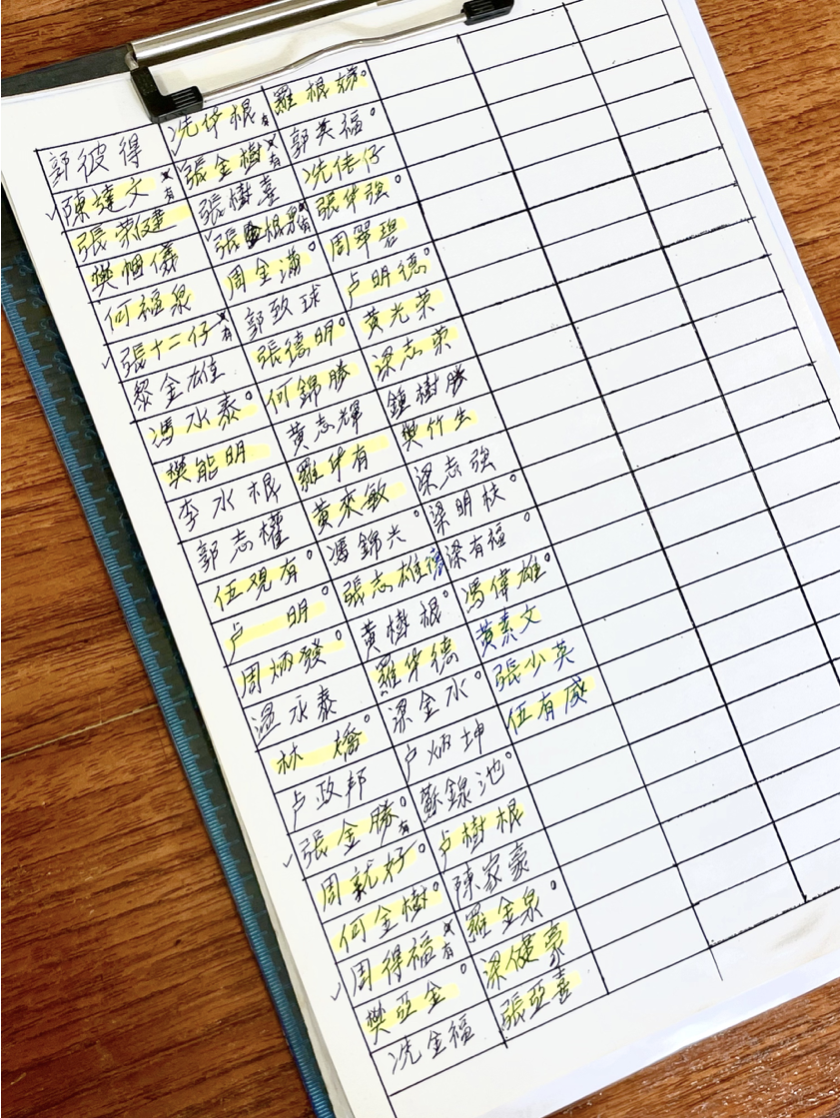 郭彼得
陳達文
張荣健
樊帼儀
何福泉
張十二仔
黎金雄
馮水泰
樊能明
李水根
郭志權
伍观有
卢明
周炳發
溫水泰
林橋
卢政邦
張金勝
周就好
何金樹
周得福
樊亞金
冼金福
冼伙根
張金樹
張樹喜
周金滿
郭致球
張德明
何錦勝
黃志輝
羅华有
黃奕敏
馮錦光
張志雄
黃樹根
羅华德
梁金水
卢炳坤
蘇錦池
卢樹根
陳家豪
羅金泉
梁健豪
張亞喜
羅根
郭美福
冼佳仔
張华強
周翠碧
卢明德
黃光荣
梁志荣
鍾樹勝
樊竹生
梁志強
梁明枝
梁有福
馮偉雄
黃素文
張少英
伍有威